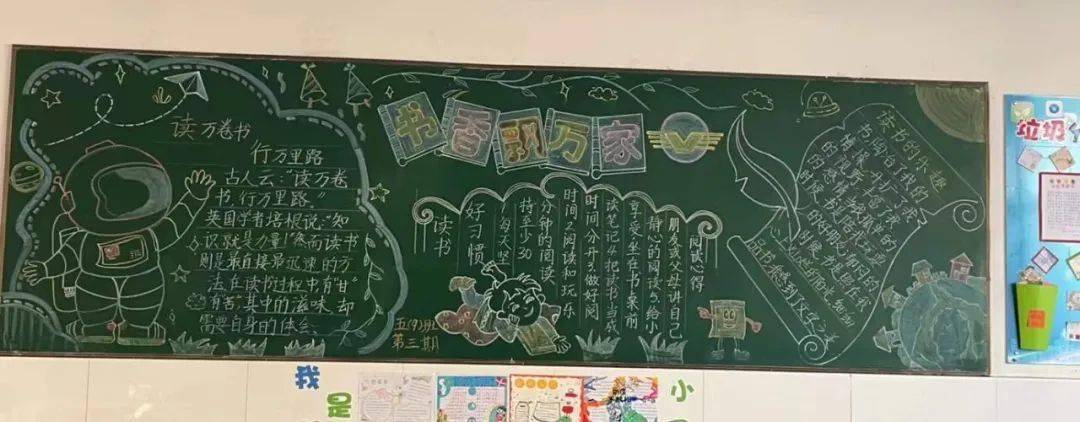 读万卷书
行万里路
古人云:"读万卷
书,行万里路。"
英国学者培根说:"知
识就是力量!"然而读书
则是最直接最迅速的方
法,在读书过程中有"甘"
有"苦",其中的滋味,却
需要自身的体会
书香飘万家
读书
好习惯
1每天坚
持至少30
分钟的阅读
时间2阅读和玩乐
时间分开3做好阅
读笔记4把读书当成
享受,坐在书桌前
静心的阅读5给小
朋友或父母讲自己
阅读心得
五(9)班
第三期
读书的乐趣
书陶冶了我的
情操,开阔了我
的视野,丰富了我
的感情
时候
品书香感到文字之美
垃圾
我是
小